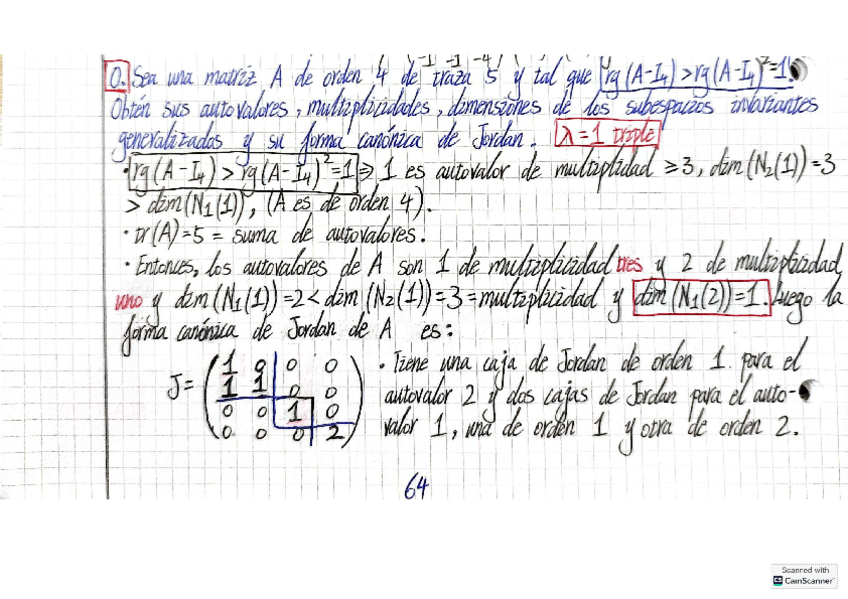 -1 -1 -4
O. Sea una matriz A de orden 4 de traza 5 y tal que rg(A-I₄)>rg(A-I₄)²=1.
Obtén sus autovalores, multiplicidades, dimensiones de los subespacios invariantes
generalizados y su forma canónica de Jordan. λ=1 triple
· rg(A-I₄)>rg(A-I₄)²=1 ⇒ 1 es autovalor de multiplidad ≥3, dim(N₂(1))=3
> dim(N₁(1)), (A es de orden 4).
· tr(A)=5= suma de autovalores.
· Entonces, los autovalores de A son 1 de multiplicidad tres y 2 de multiplicidad
uno y dim(N₁(1))=2<dim(N₂(1))=3=multiplicidad y dim(N₁(2))=1. Luego la
forma canónica de Jordan de A es:
J= (1 0 0 0
1 1 0 0
0 0 1 0
0 0 0 2)
· Tiene una caja de Jordan de orden 1 para el
autovalor 2 y dos cajas de Jordan para el auto-
valor 1, una de orden 1 y otra de orden 2.
64
Scanned with
CS CamScanner